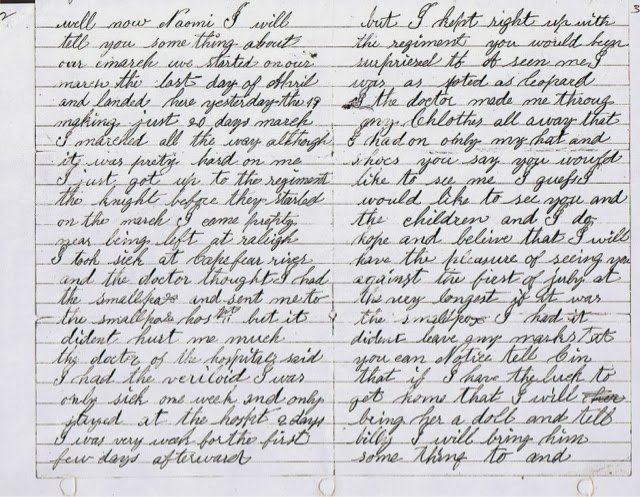 2
well now Naomi I will
tell you some thing about
our march we started on our
march the last day of April
and landed here yesterday the 19
making just 20 days march
I marched all the way although
it was prety hard on me
I just got up to the regiment
the knight before they started
on the march I came prepty
near being left at raligh
I took sick at Cape fear river
and the doctor thought I had
the smallpox and sent me to
the smallpox hospitl but it
dident hurt me much
thy doctor of the hospital said
I had the veriloid I was
only sick one week and only
stayed at the hospt 2 days
I was very week for the first
few days afterward
3
but I kept right up with
the regiment you would been
surpriesed to of seen me I
was as spoted as leopard
the doctor made me throug
my Chlothes all away that
I had on only my hat and
shoes you say you would
like to see me I guess I
would like to see you and
the children and I do
hope and beleive that I will
have the pleasure of seeing you
against the fierst of july at
the very longest if it was
the smallpox I had it
dident leave any marks that
you can Notice tell Cin
that if I have the luck to
get home that I will
bring her a doll and tell
billy I will bring him
some thing to and